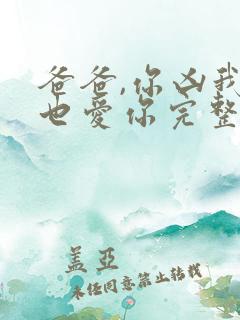 爸爸,你凶我
也爱你完整
盖亚
未经同意禁止转载